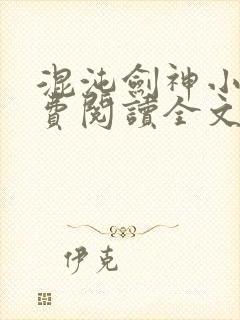 混沌劍神小
費閱讀全文
伊克